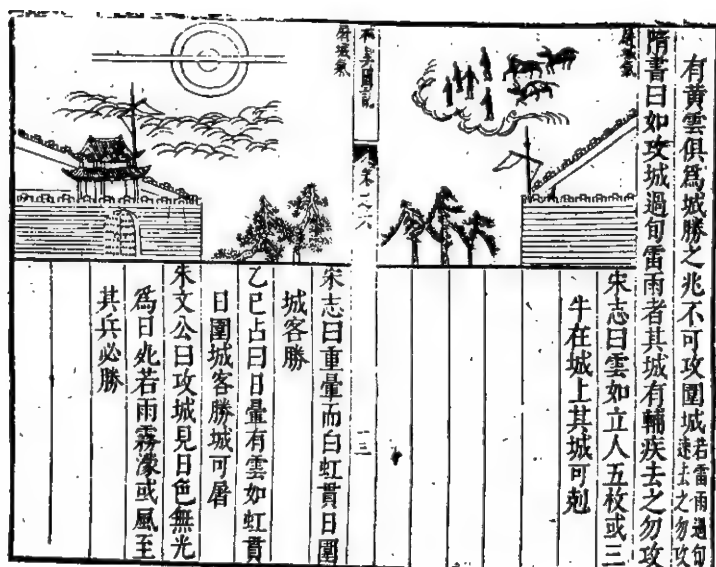 有黃雲俱爲城勝之兆不可攻圍城若雷雨過旬速去之勿攻
隋書曰如攻城過旬雷雨者其城有輔疾去之勿攻
屠城氣
宋志曰雲如立人五枚或三
牛在城上其城可剋
之六
屠城氣
宋志曰重暈而白虹貫日圍
城客勝
乙巳占曰日暈有雲如虹貫
日圍城客勝城可屠
朱文公曰攻城見日色無光
爲日死若雨霧濛或風至
其兵必勝